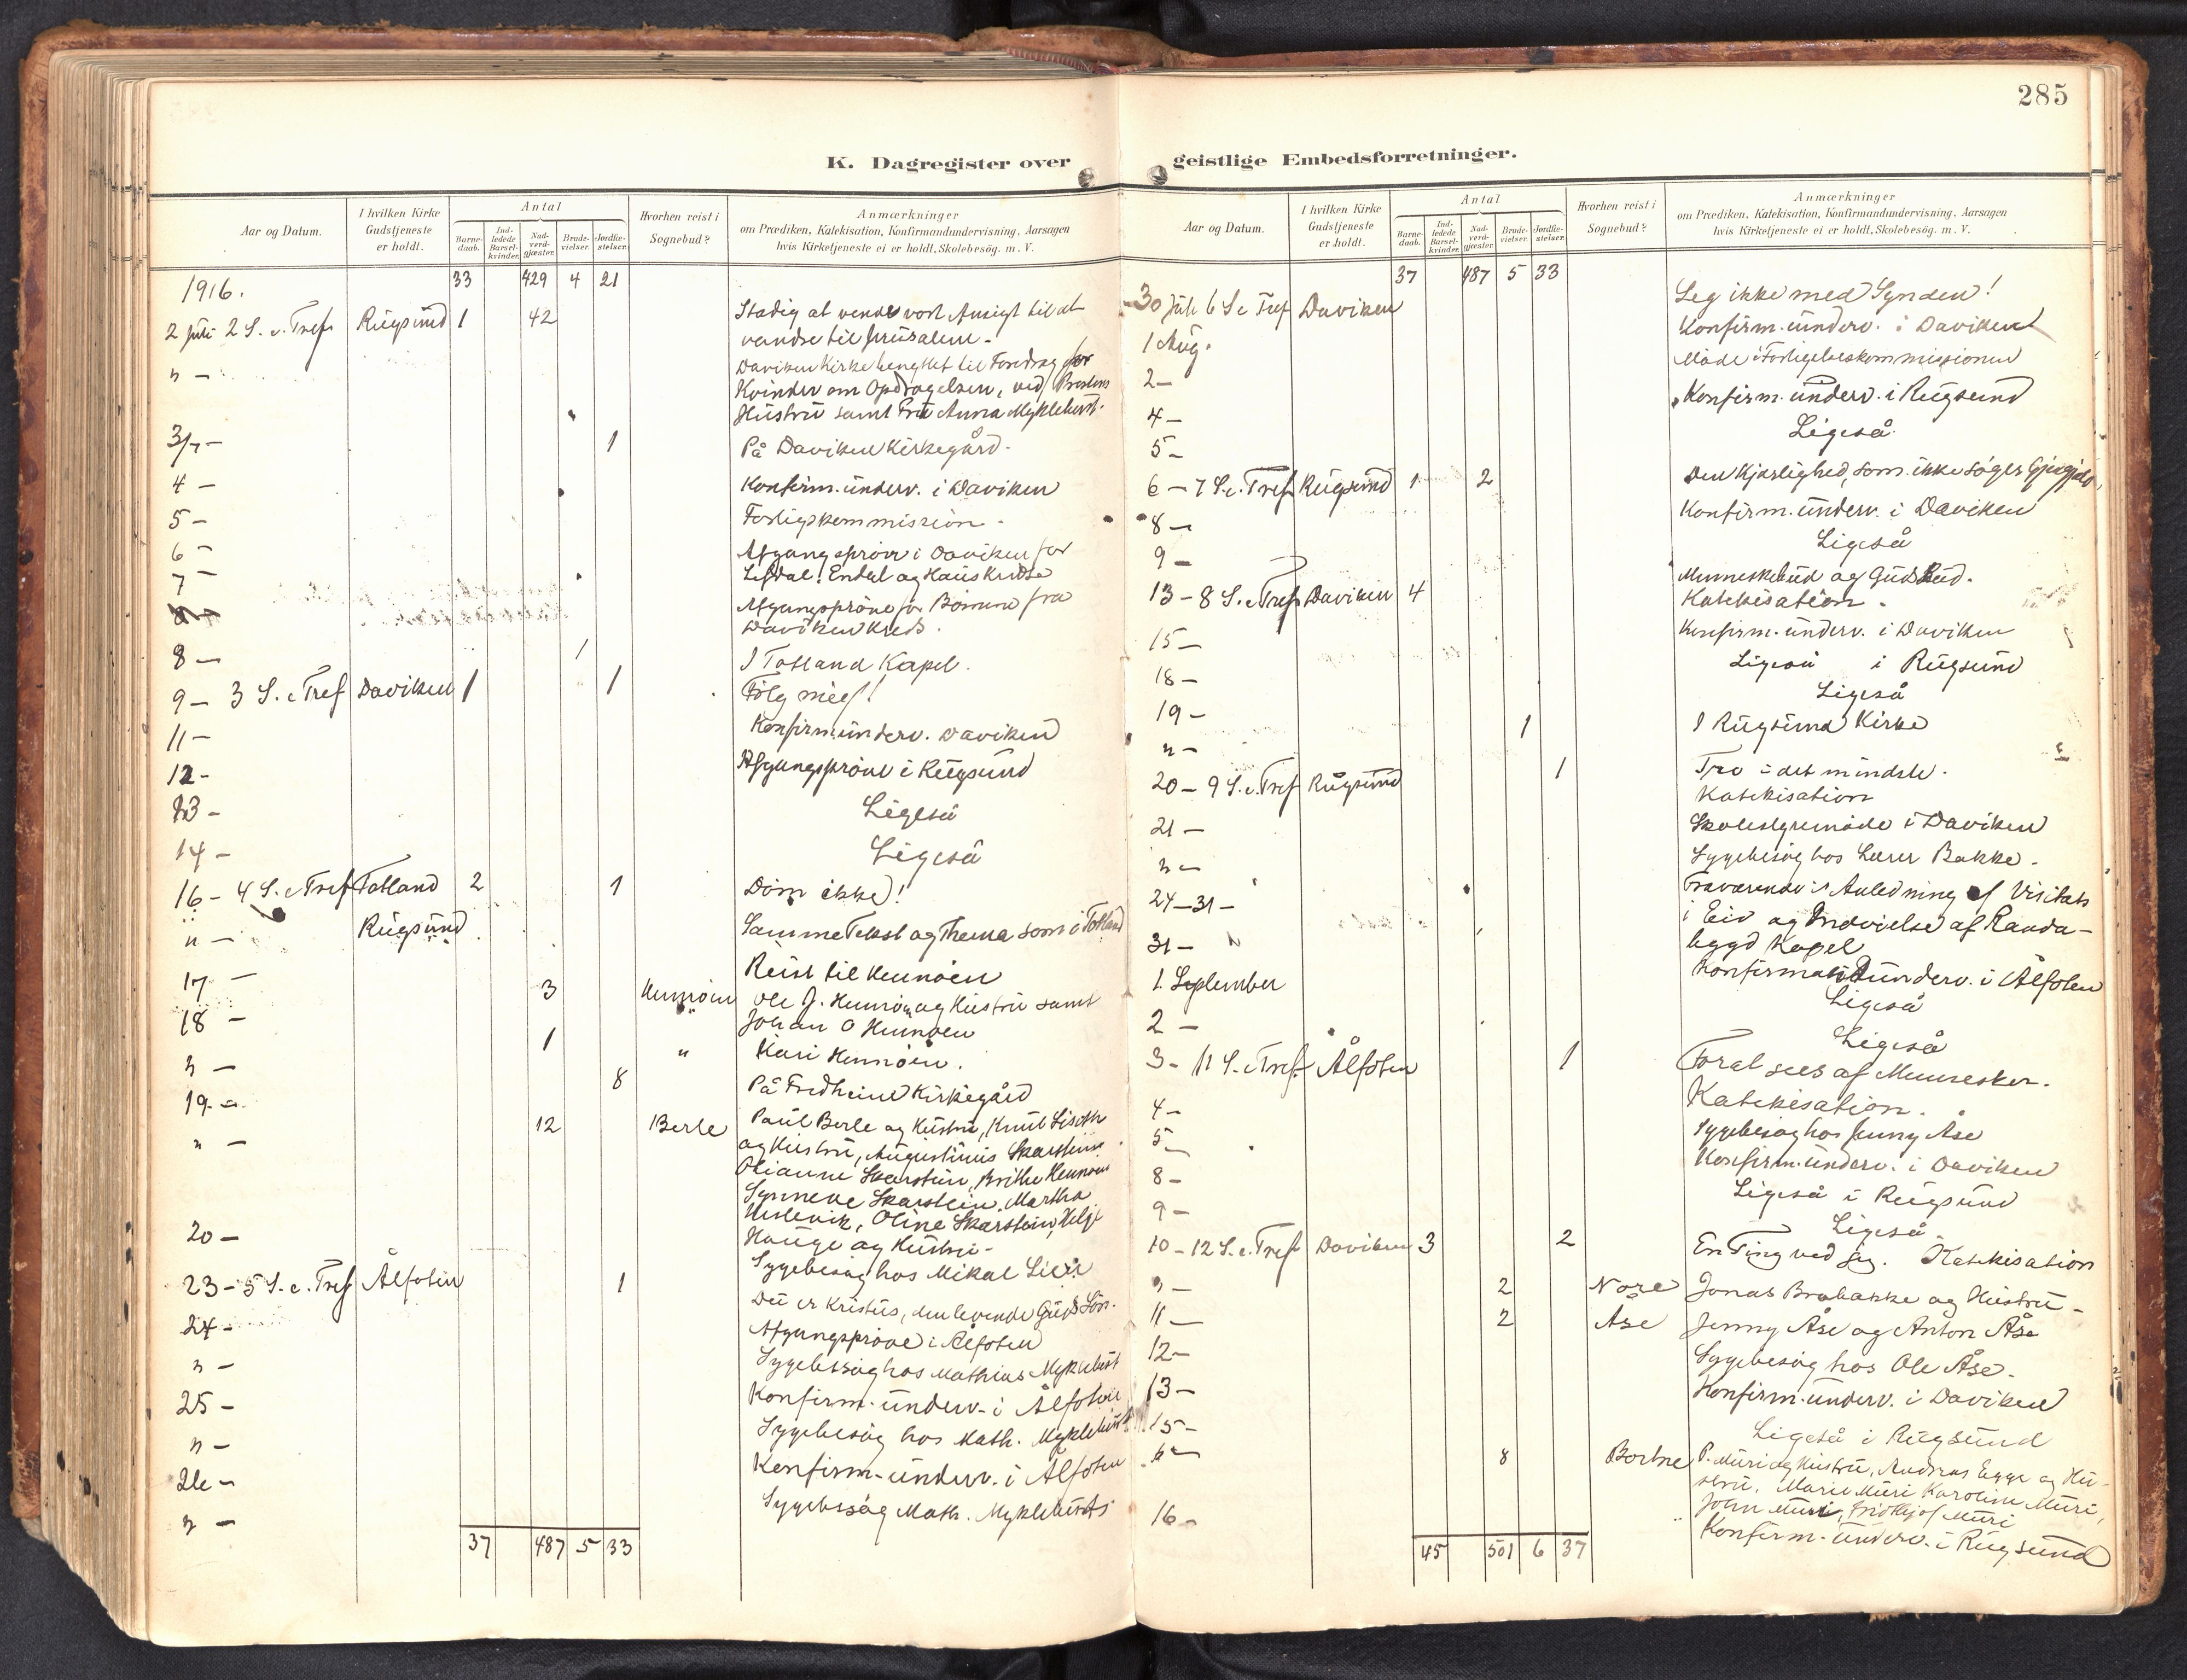 285
K. Dagregister over geistlige Embedsforretninger.
Aar og Datum.
I hvilken Kirke Gudstjeneste er holdt.
Antal
Barnedaab.
Indledede Barselkvinder.
Nadverdgjæster.
Brudevielser.
Jordfæstelser.
Hvorhen reist i Sognebud?
Anmærkninger
om Prædiken, Katekisation, Konfirmandundervisning, Aarsagen
hvis Kirketjeneste ei er holdt, Skolebesøg. m. V.
1916. 33 429 4 21
2 Juli 2 S. e. Tref. Rugsund 1 42 Stadig at vende vort Ansigt til at
vandre til Jerusalem.
" — Daviken Kirke benyttet til Foredrag for
Kvinder om Opdragelsen, ved Prestens
Hustru samt Fru Anna Myklebust.
3/7 — 1 På Daviken Kirkegård.
4 — Konfirm. underv. i Daviken
5 — Forligskommission.
6 — Afgangsprøve i Daviken for
Lefdal, Endal og Haus Kredse
7 — Afgangsprøve for Børnene fra
Daviken Kreds.
8 — 1 I Totland Kapel.
9 — 3 S. e Tref Daviken 1 1 Følg mig!
11 — Konfirm. underv. Daviken
12 — Afgangsprøve i Rugsund
13 — Ligeså
14 — Ligeså
16 — 4 S. e Tref Totland 2 1 Døm ikke!
" — Rugsund Samme Tekst og Thema som i Totland
17 — Reist til Hennøen
18 — 3 Hennøen Ole J. Hennøen og Hustru samt
Johan O Hennøen
" — 1 " Kari Hennøen.
19 — 8 På Fredheim Kirkegård
" — 12 Berle Paul Berle og Hustru, Knut Liseth
og Hustru, Augustinus Skarstein
Olianne Skarstein, Brithe Hennøen
Synneve Skarstein, Martha
Oline Skarstein, Helje
Hauge og Hustru.
20 — Sygebesøg hos Mikal
23 — 5 S. e. Tref Ålfoten 1 Du er Kristus, den levende Guds Søn.
24 — Afgangsprøve i Ålfoten
" — Sygebesøg hos Mathias Myklebust
25 — Konfirm. underv. i Ålfoten
" — Sygebesøg hos Math. Myklebust
26 — Konfirm. underv. i Ålfoten
" — Sygebesøg Math. Myklebust
37 487 5 33
Aar og Datum.
I hvilken Kirke Gudstjeneste er holdt.
Antal
Barnedaab.
Indledede Barselkvinder.
Nadverdgjæster.
Brudevielser.
Jordfæstelser.
Hvorhen reist i Sognebud?
Anmærkninger
om Prædiken, Katekisation, Konfirmandundervisning, Aarsagen
hvis Kirketjeneste ei er holdt, Skolebesøg. m. V.
37 487 5 33
30 Juli 6 S e Tref Daviken Leg ikke med Synden!
1 Aug. Konfirm. underv. i Daviken
2 — Møde i Forligelseskommissionen
4 — Konfirm. underv. i Rugsund
5 — Ligeså
6 — 7 S. e. Tref Rugsund 1 2 Den Kjærlighed, som ikke søger Gjengjæld
8 — Konfirm. underv. i Daviken
9 — Ligeså
13 — 8 S. e Tref Daviken 4 Menneskebud og Guds Bud.
Katekisation.
15 — Konfirm. underv. i Daviken
18 — Ligeså i Rugsund
19 — Ligeså
" — 1 I Rugsund Kirke
20 — 9 S. e. Tref Rugsund 1 Tro i det mindste.
Katekisation
21 — Skolestyremøde i Daviken
" — Sygebesøg hos Lærer Bakke.
24—31 — Fraværende i Anledning af Visitats
i Eid og Indvielse af Randabygd Kapel
31 — Konfirmandunderv. i Ålfoten
1. September Ligeså
2 — Ligeså
3 — 11 S. e Tref. Ålfoten 1 For at sees af Mennesker.
Katekisation.
4 — Sygebesøg hos Jenny Åse
5 — Konfirm. underv. i Daviken
8 — Ligeså i Rugsund
9 — Ligeså.
10 — 12 S. e. Tref Daviken 3 2 En Ting ved jeg. Katekisation
" — 2 Nore Jonas Brobakke og Hustru.
11 — 2 Åse Jenny Åse og Anton Åse
12 — Sygebesøg hos Ole Åse.
13 — Konfirm. underv. i Daviken
15 — Ligeså i Rugsund
" — 8 Bortne P. Muri og Hustru, Andreas Egge og Hustru, Marie Muri Karoline Muri,
John Muri, Fridthjof Muri
16 — Konfirm. underv. i Rugsund
45 501 6 37